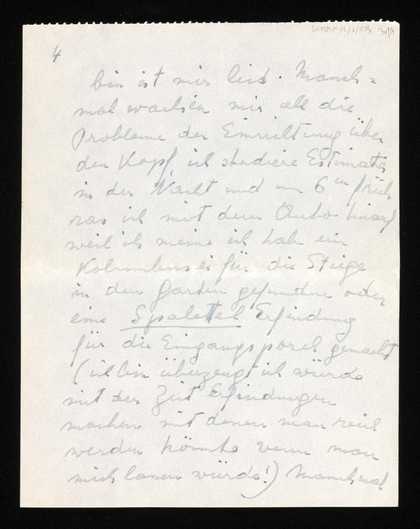 4
bin ist mir leid. Manch=
mal wachsen mir all die
Probleme der Einrichtung über
den Kopf ich studiere Estimates
in der Nacht und um 6 Uhr früh
ras ich mit dem Auto hinauf
weil ich meine ich hab ein
Kolumbus ei für die Stiege
in den Garden gefunden oder
eine Spalettel Erfindung
für die Eingangsporch gemacht
(ich bin überzeugt ich würde
mit der Zeit Erfindungen
machen mit denen man reich
werden könnte wenn man
mich lassen würde!) Manchmal